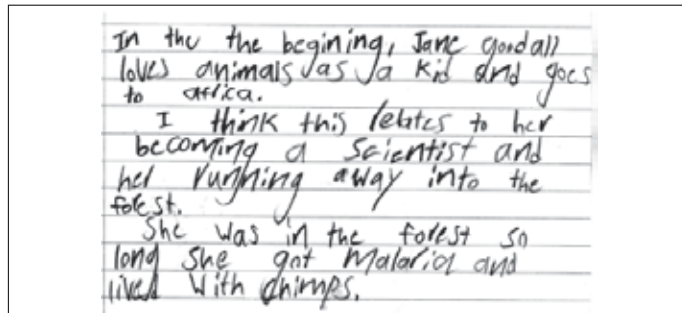 In the the begining, Jane goodall
loves animals as a kid and goes
to africa.
I think this relates to her
becoming a Scientist and
her running away into the
forest.
She was in the forest so
long she got Malaria and
lived with chimps.